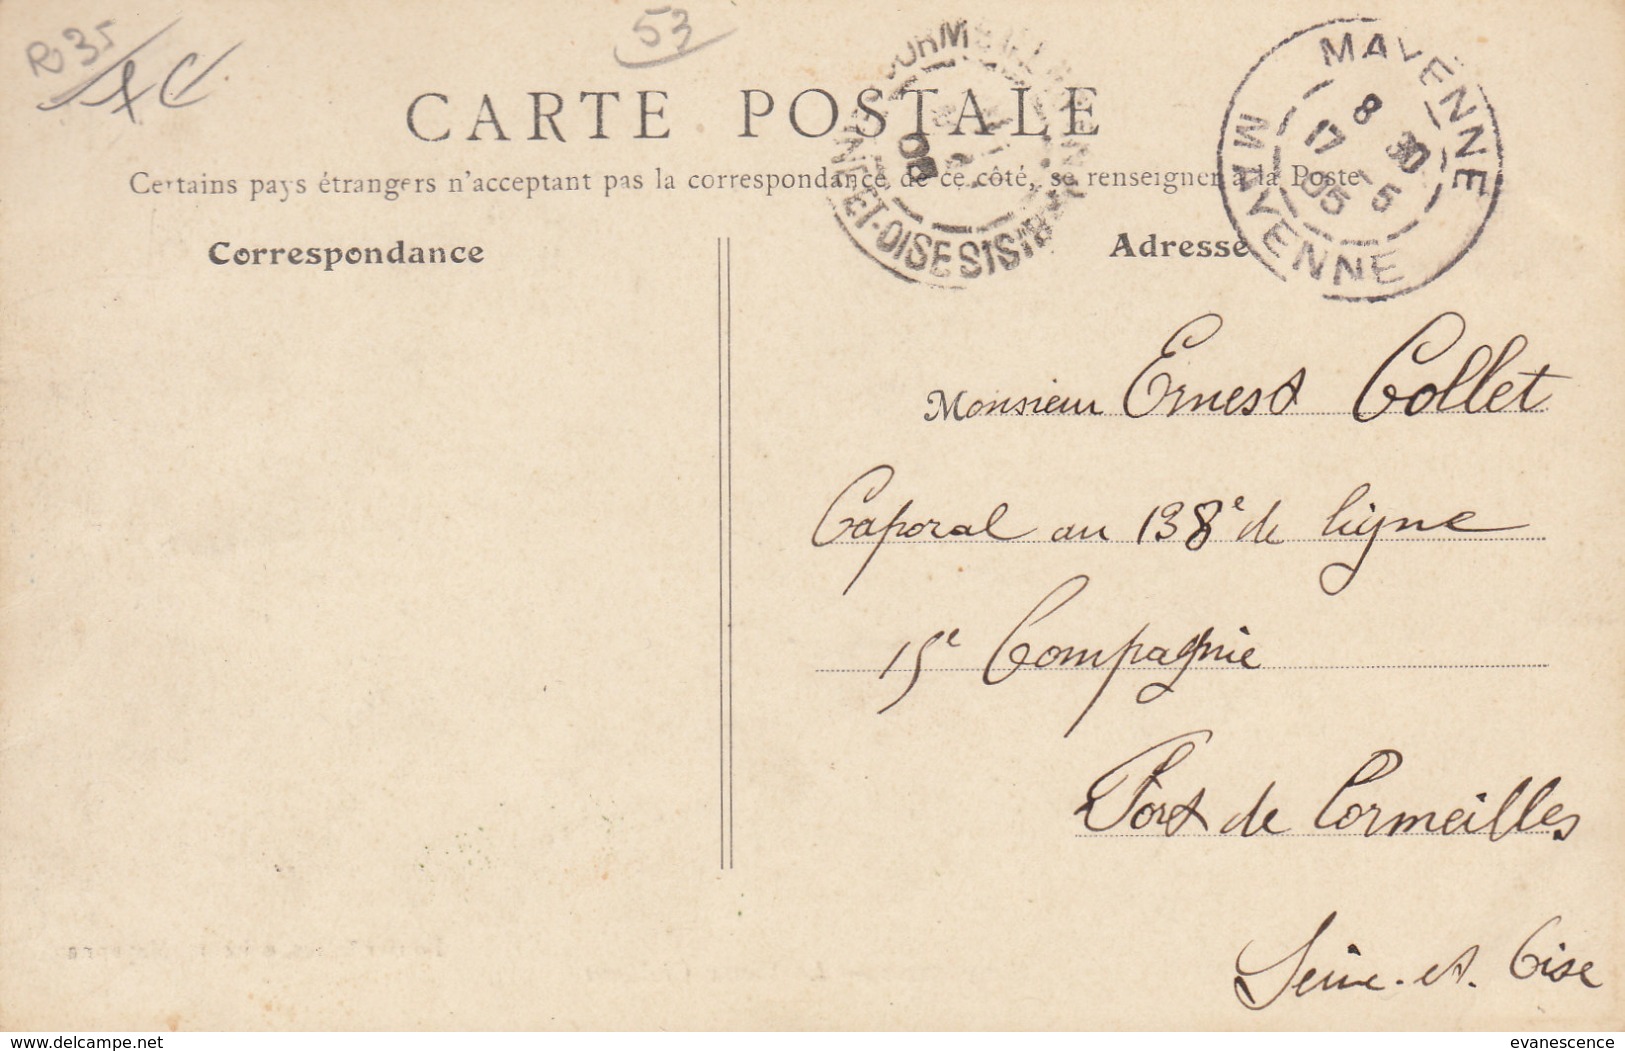 R 35
53
CARTE POSTALE
Certains pays étrangers n'acceptant pas la correspondance de ce côté, se renseigner à la Poste
Correspondance
Adresse
CORMEILLES
SEINE-ET-OISE
MAYENNE
8 30
17 5
05
MAYENNE
Monsieur Ernest Collet
Caporal au 138e de ligne
15e Compagnie
Fort de Cormeilles
Seine-et-Oise
delcampe.net
evanescence